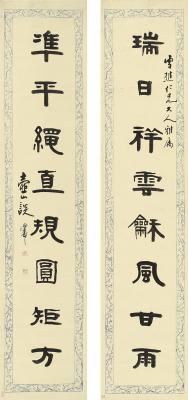 瑞日祥雲龢風甘雨
仁兄大人雅屬
準平繩直規圓矩方